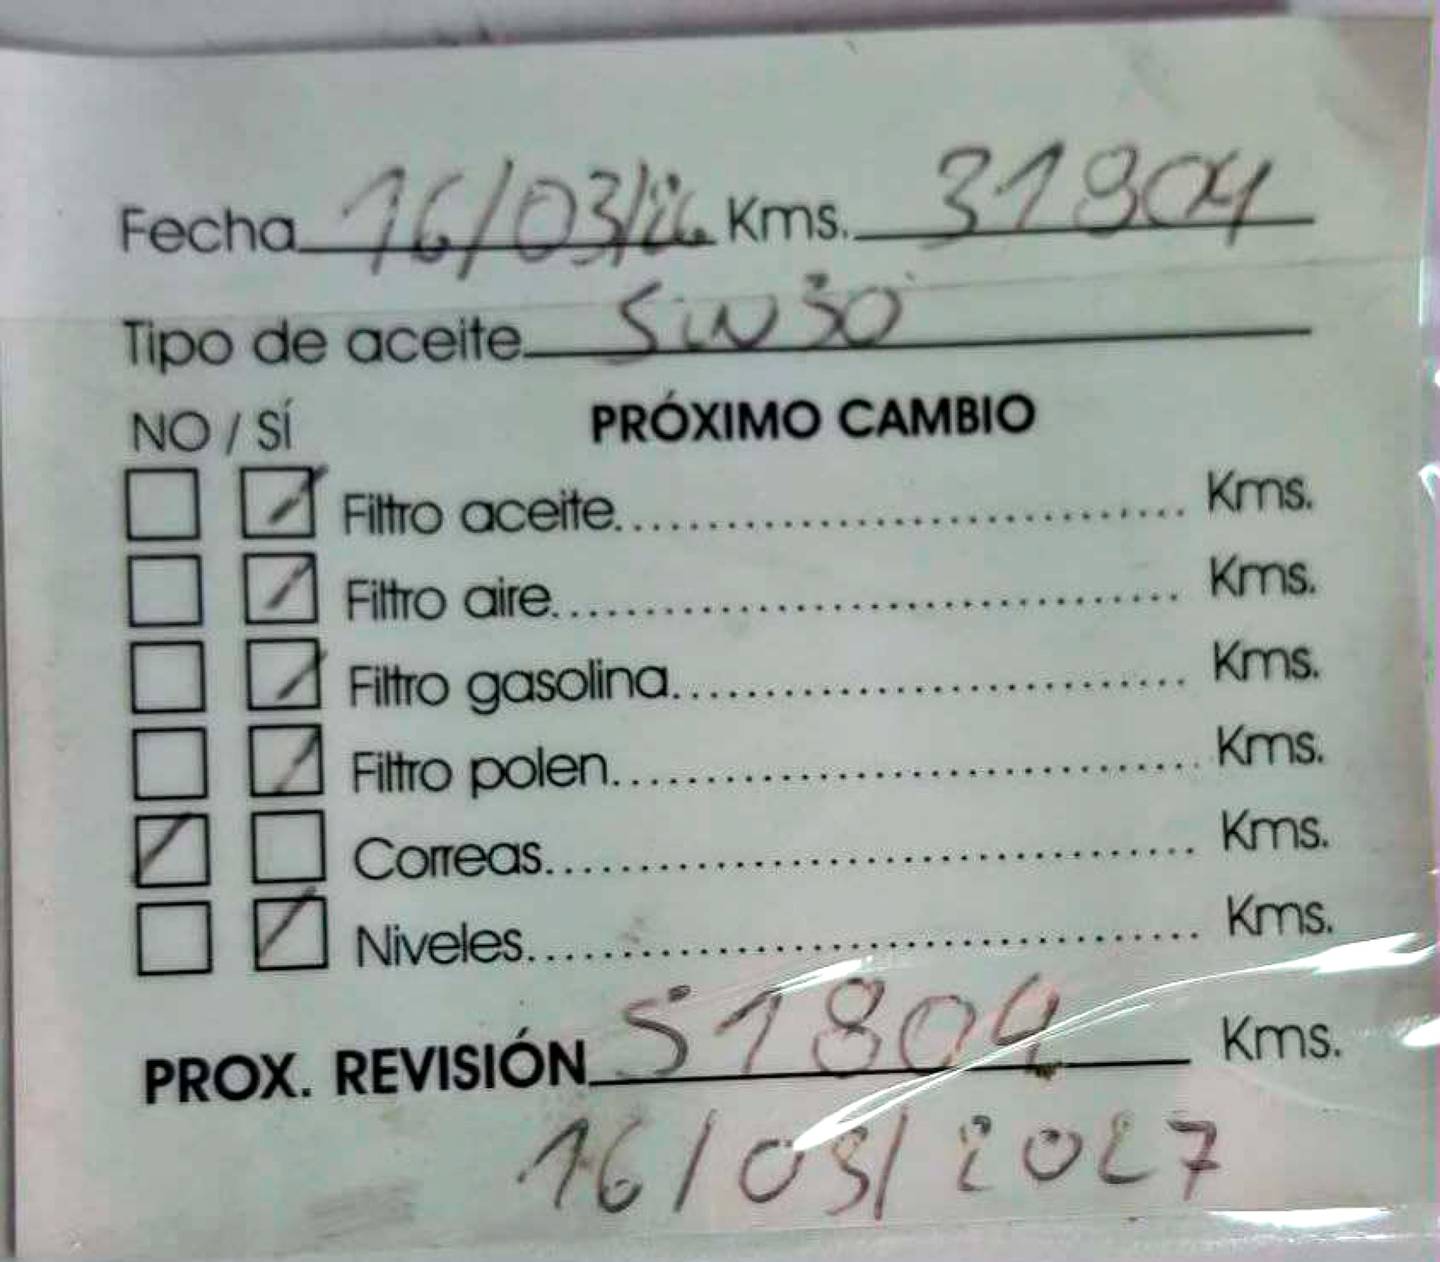 Fecha 16/03/26 Kms. 31804
Tipo de aceite 5W30
NO / SÍ PRÓXIMO CAMBIO
Filtro aceite........................................ Kms.
Filtro aire........................................ Kms.
Filtro gasolina........................................ Kms.
Filtro polen........................................ Kms.
Correas........................................ Kms.
Niveles........................................ Kms.
PROX. REVISIÓN 51804 Kms.
16/03/2027